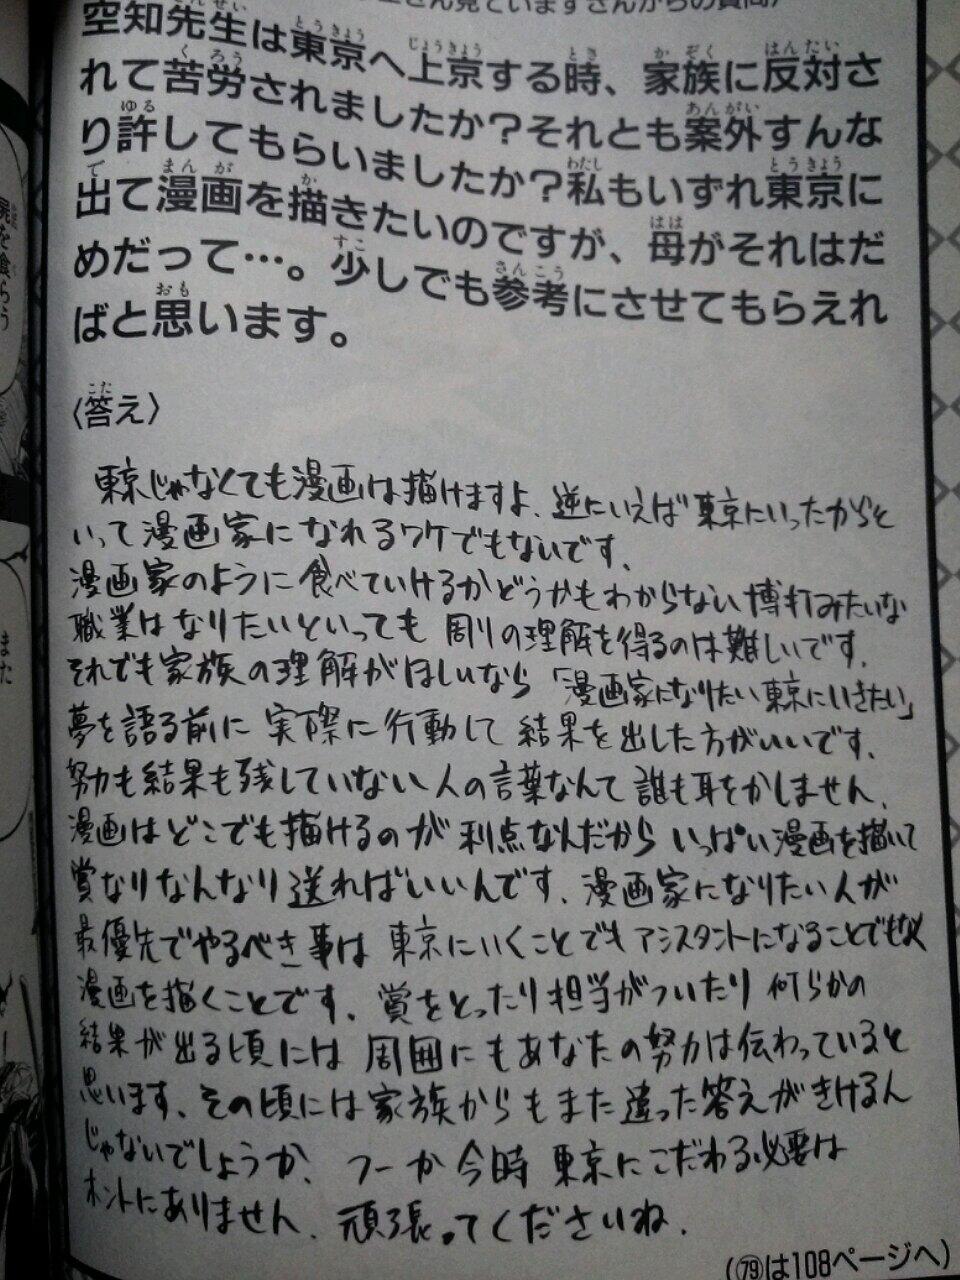 さん見ていますさんからの質問〉
空知先生は東京へ上京する時、家族に反対さ
れて苦労されましたか？それとも案外すんな
り許してもらいましたか？私もいずれ東京に
出て漫画を描きたいのですが、母がそれはだ
めだって…。少しでも参考にさせてもらえれ
ばと思います。
〈答え〉
東京じゃなくても漫画は描けますよ、逆にいえば東京にいったからと
いって漫画家になれるワケでもないです、
漫画家のように食べていけるかどうかもわからない博打みたいな
職業はなりたいといっても周りの理解を得るのは難しいです、
それでも家族の理解がほしいなら「漫画家になりたい東京にいきたい」
夢を語る前に実際に行動して結果を出した方がいいです、
努力も結果も残していない人の言葉なんて誰も耳をかしません、
漫画はどこでも描けるのが利点なんだからいっぱい漫画を描いて
賞なりなんなり送ればいいんです、漫画家になりたい人が
最優先でやるべき事は東京にいくことでもアシスタントになることでもなく
漫画を描くことです、賞をとったり担当がついたり何らかの
結果が出る頃には周囲にもあなたの努力は伝わっていると
思います、その頃には家族からもまた違った答えがきけるん
じゃないでしょうか、つーか今時東京にこだわる必要は
ホントにありません、頑張ってくださいね、
(79は108ページへ)
を食らう
また